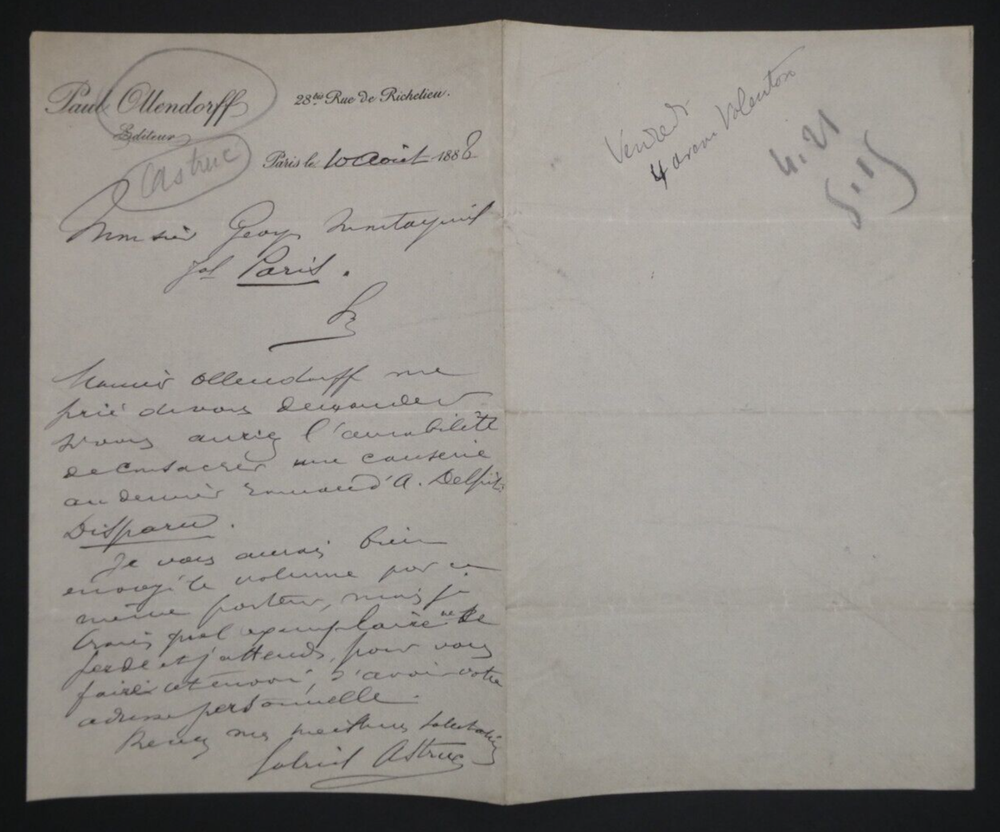 Paul Ollendorff
Editeur
28bis Rue de Richelieu.
Astruc
Paris le 10 Août 1888
Monsieur Georges Montorgueil
Paris.
Monsieur Ollendorff me
prie de vous demander
si vous auriez l'amabilité
de consacrer une causerie
au dernier roman d'A. Delpit:
Disparu.
Je vous aurais bien
envoyé le volume par ce
même porteur, mais je
crains que l'exemplaire ne se
perde et j'attends, pour vous
faire cet envoi, d'avoir votre
adresse personnelle.
Recevez mes meilleures salutations
Gabriel Astruc
Vendredi
4
4.21
5.15